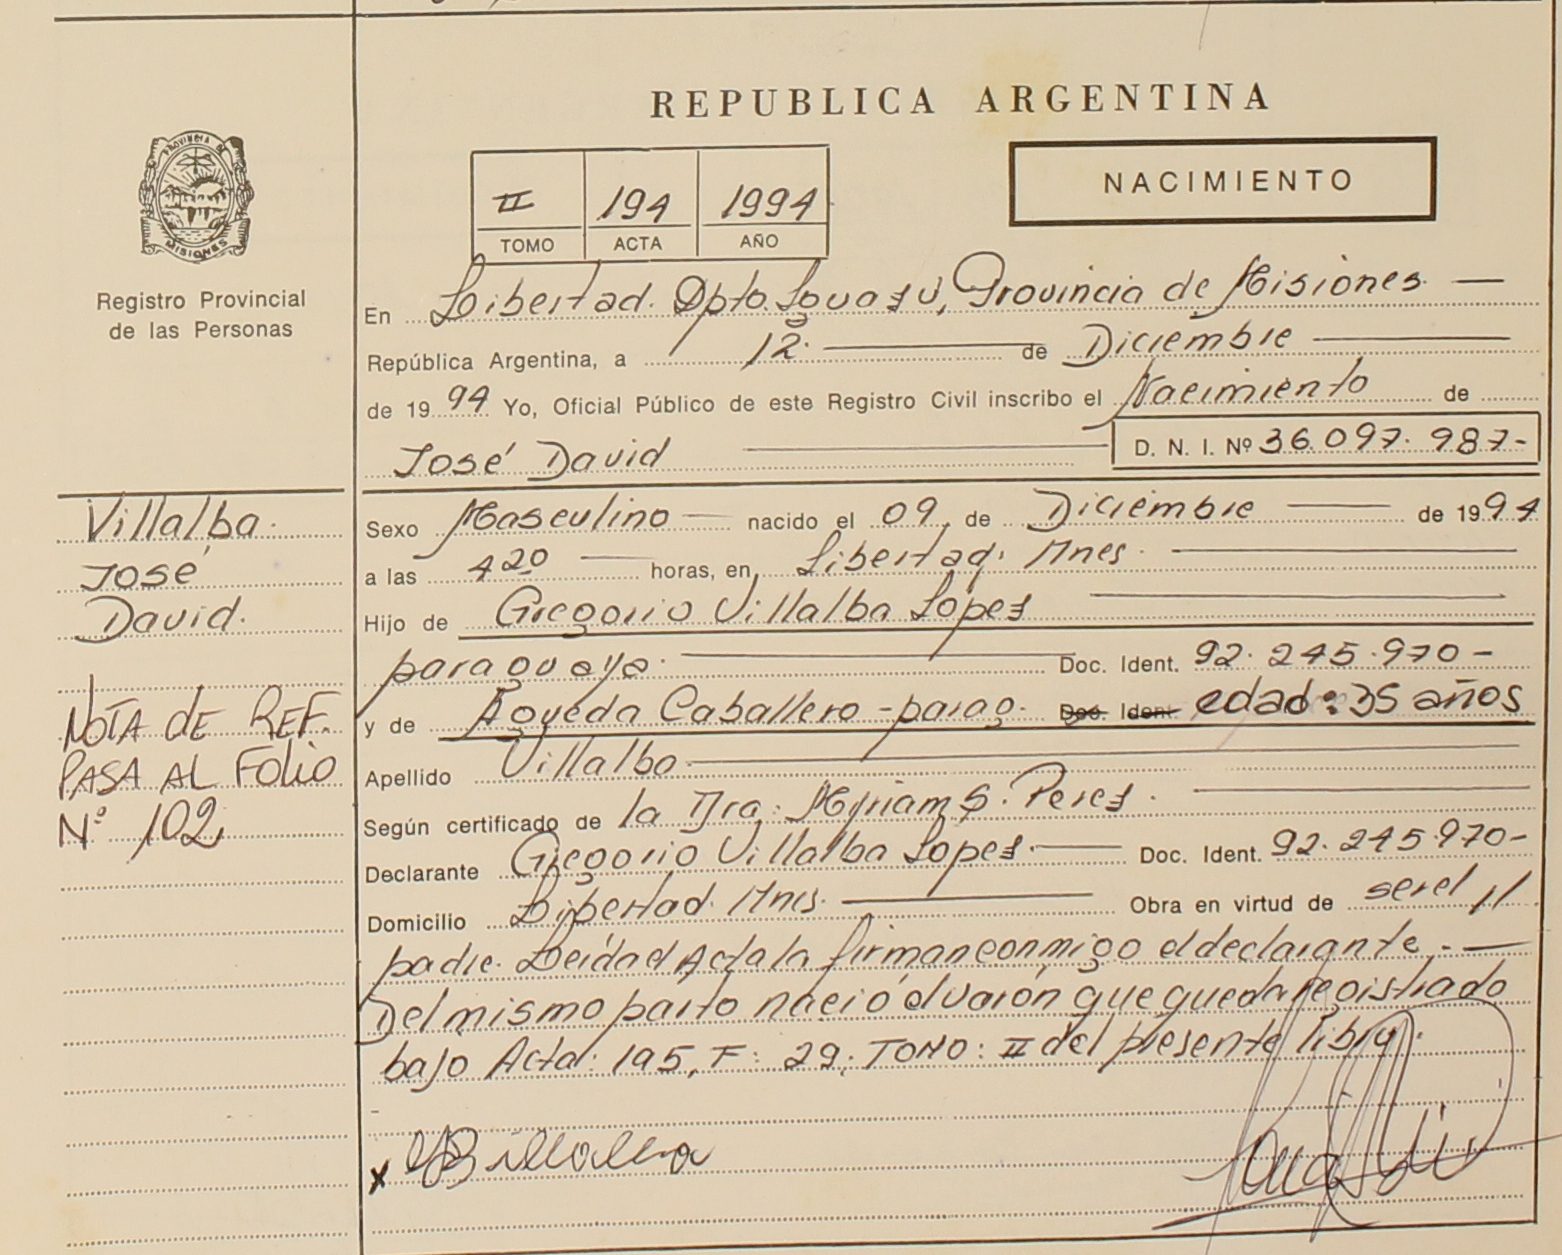 REPUBLICA ARGENTINA
NACIMIENTO
II 194 1994
TOMO ACTA AÑO
PROVINCIA DE
MISIONES
Registro Provincial
de las Personas
En Libertad. Dpto. Iguazú, Provincia de Misiones
República Argentina, a 12 de Diciembre
de 1994 Yo, Oficial Público de este Registro Civil inscribo el Nacimiento de
José David D. N. I. Nº 36.097.987-
Villalba.
José
David.
NOTA DE REF.
PASA AL FOLIO
Nº 102
Sexo Masculino nacido el 09 de Diciembre de 1994
a las 4 20 horas, en Libertad. Mnes.
Hijo de Gregorio Villalba Lopez
paraguayo. Doc. Ident. 92.245.970-
y de Agueda Caballero - parag. Doc. Ident. edad: 35 años
Apellido Villalba
Según certificado de la Dra: Myriam S. Perez.
Declarante Gregorio Villalba Lopez. Doc. Ident. 92.245.970-
Domicilio Libertad. Mnes. Obra en virtud de ser el
padre. Leída el Acta la firman conmigo el declarante.
Del mismo parto nació el varón que queda registrado
bajo Acta: 195, F: 29; TOMO: II del presente libro.
x Billalba